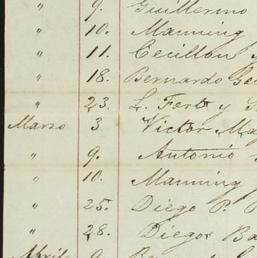 " 9. Guillermo
" 10. Manning
" 11. Cecillon y
" 18. Bernardo
" 23. L. Ferb y
Marzo 3. Victor
" 9. Antonio
" 10. Manning
" 25. Diego P.
" 28. Diegos
Abril